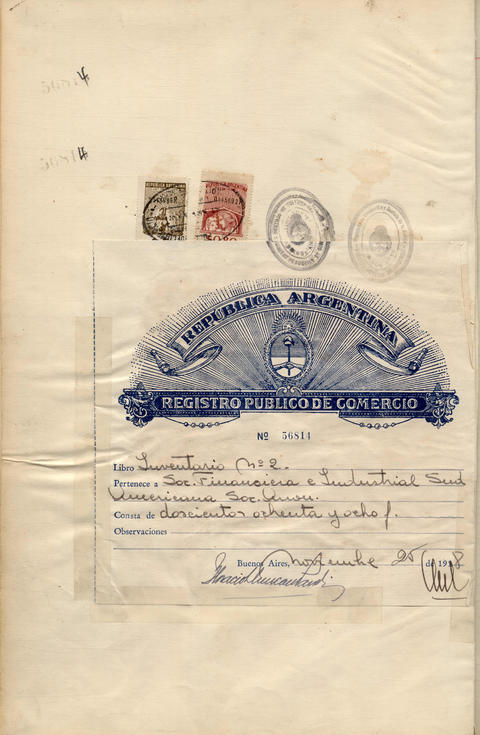 56814
56814
REPUBLICA ARGENTINA
REPUBLICA ARGENTINA
REPUBLICA ARGENTINA
REGISTRO PUBLICO DE COMERCIO
Nº 56814
Libro Inventario Nº 2.
Pertenece a Soc. Financiera e Industrial Sud
Americana Soc. Anón.
Consta de doscientos ochenta y ocho f.
Observaciones
Buenos Aires, noviembre 25 de 19